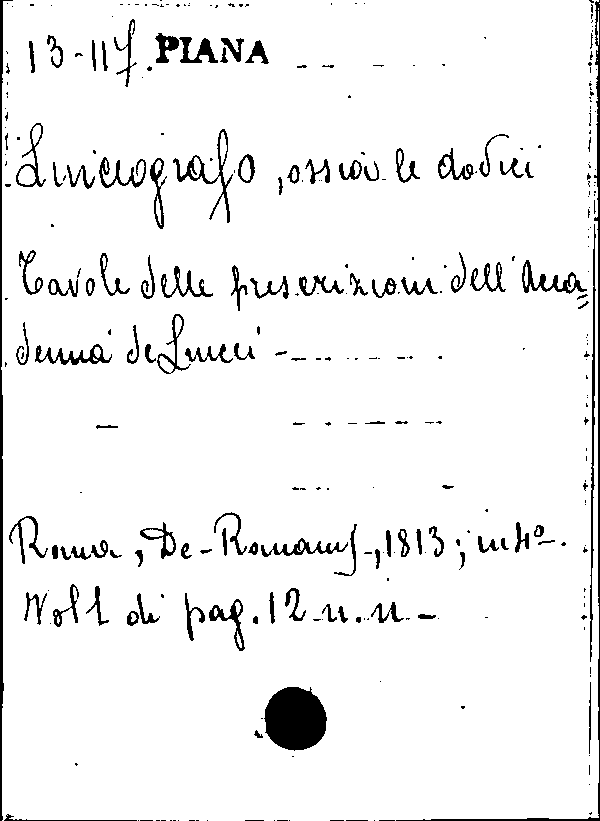 13-117. PIANA
Linceografo, ossia le dodici
Tavole delle prescrizioni dell'Acca=
demia de Lincei -
Roma, De-Romanis, 1813; in 4º.
Vol 1 di pag. 12 n. n -